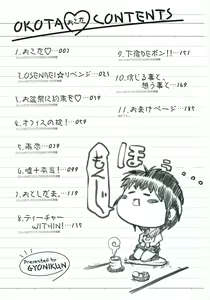 OKOTA おこた CONTENTS
1.おこた♡…003
2.OSENBEI☆リベンジ…023
3.お盆祭に約束を♡…039
4.オフィスの掟!…059
5.雨恋…079
6.嘘十万言!…099
7.おとしだま。…119
8.ティーチャー
WITHIN!…135
9.下宿DEポン!!…151
10.信じる事と、
想う事と…169
11.おまけページ…185
もくじ
ほ…
Presented by
GYONIKUN